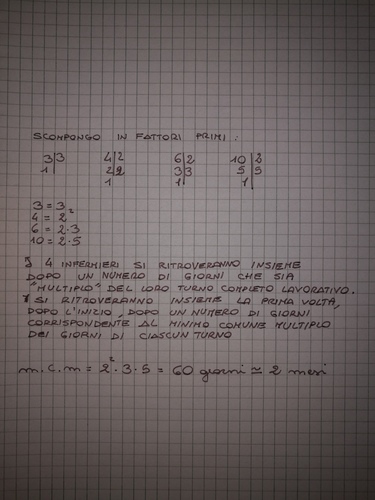 SCOMPONGO IN FATTORI PRIMI:
3|3 4|2 6|2 10|2
1| 2|2 3|3 5|5
1 1| 1|
3 = 3
4 = 2²
6 = 2·3
10 = 2·5
I 4 INFERMIERI SI RITROVERANNO INSIEME
DOPO UN NUMERO DI GIORNI CHE SIA
"MULTIPLO" DEL LORO TURNO COMPLETO LAVORATIVO.
SI RITROVERANNO INSIEME LA PRIMA VOLTA,
DOPO L'INIZIO, DOPO UN NUMERO DI GIORNI
CORRISPONDENTE AL MINIMO COMUNE MULTIPLO
DEI GIORNI DI CIASCUN TURNO
m.c.m = 2²·3·5 = 60 giorni ≃ 2 mesi